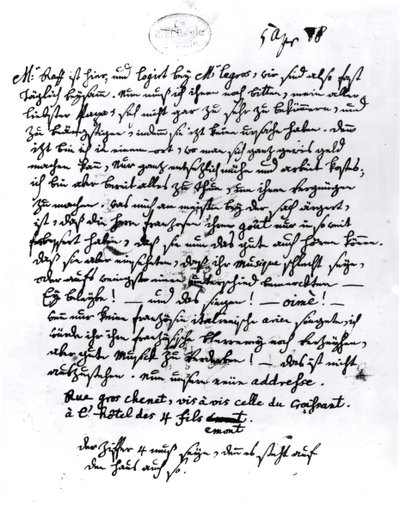 5 Apr 78
M:r Raff ist hier, und logirt bey M:r Legros, wir sind also fast
täglich beysamm. Nun muß ich ihnen noch bitten, mein aller
liebster Papa, sich nicht gar zu sehr zu bekümmern, und
zu beängstigen, indemm sie izt keine ursache haben. denn
izt bin ich in einem ort, wo man sich ganz gewis geld
machen kan, Nur ganz entsezlich mühe und arbeit kostets,
ich bin aber bereit alles zu thun, um ihnen vergnügen
zu machen. was mich am meisten bey der sach ärgert,
ist, daß die herrn franzosen ihren goût nur in so weit
verbessert haben, daß sie nun das gute auch hören können.
daß sie aber einscheten, daß ihr Musique schlecht seye,
oder aufs wenigst einen unterschied bemerckten —
Ey beleybe! — und das singen! — oimè! —
wenn nur keine französin italienische arien singete, ich
würde ihr ihre französische Plererey noch verzeyhen,
aber gute Musick zu verderben! — das ist nicht
auszustehen. Nun unsere neue addresse.
Rue gros chenet, vis à vis celle du Croissant.
à l'hôtel des 4 fils emont.
emont
der ziffer 4 muß seyn, denn es steht auf
dem haus auch so.